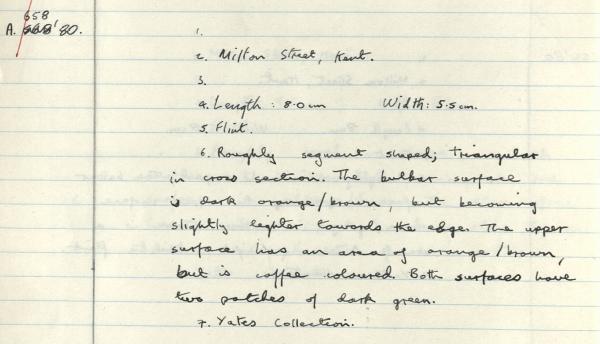 658
A. 668' 80.
1.
2. Milton Street, Kent.
3.
4. Length : 8.0 cm Width: 5.5 cm.
5. Flint.
6. Roughly segment shaped; triangular
in cross section. The bulbar surface
is dark orange/brown, but becoming
slightly lighter towards the edge. The upper
surface has an area of orange/brown,
but is coffee coloured. Both surfaces have
two patches of dark green.
7. Yates Collection.